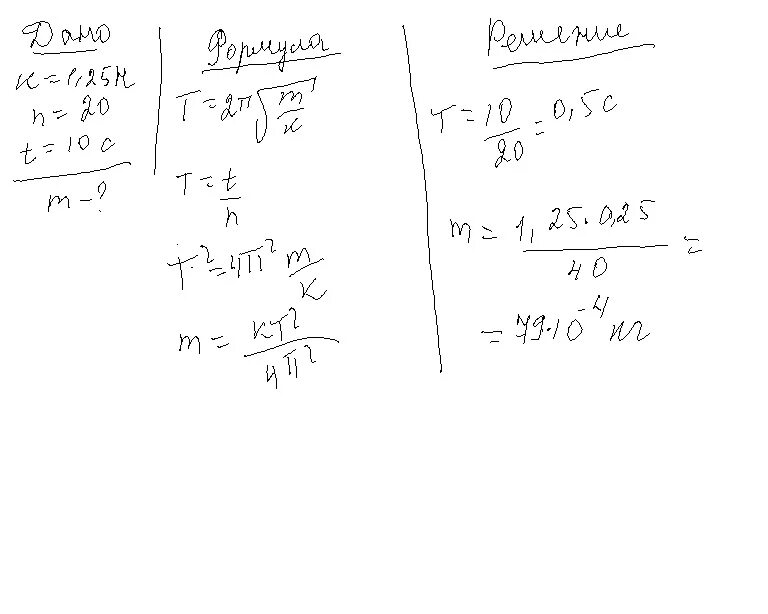 Дано
к = 1,25Н
n = 20
t = 10 с
m - ?
Формула
T = 2π√(m/к)
T = t/n
T² = 4π² m/к
m = кT²/4π²
Решение
T = 10/20 = 0,5 с
m = 1,25·0,25/40 =
= 79·10⁻⁴ кг